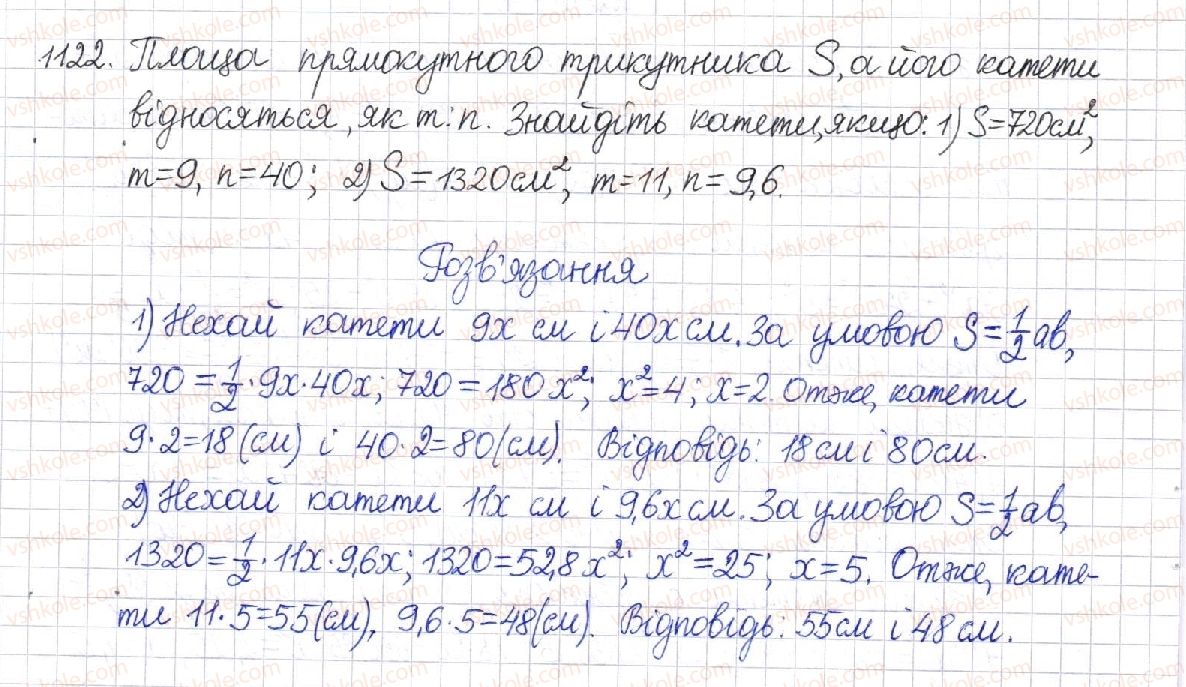 1122. Площа прямокутного трикутника S, а його катети
відносяться, як m:n. Знайдіть катети, якщо: 1) S=720см²,
m=9, n=40; 2) S=1320см², m=11, n=9,6.
Розв'язання
1) Нехай катети 9x см і 40x см. За умовою S=1/2ab,
720=1/2·9x·40x; 720=180x²; x²=4; x=2. Отже, катети
9·2=18(см) і 40·2=80(см). Відповідь: 18см і 80см.
2) Нехай катети 11x см і 9,6x см. За умовою S=1/2ab,
1320=1/2·11x·9,6x; 1320=52,8x²; x²=25; x=5. Отже, кате-
ти 11·5=55(см), 9,6·5=48(см). Відповідь: 55см і 48см.
vshkole.com